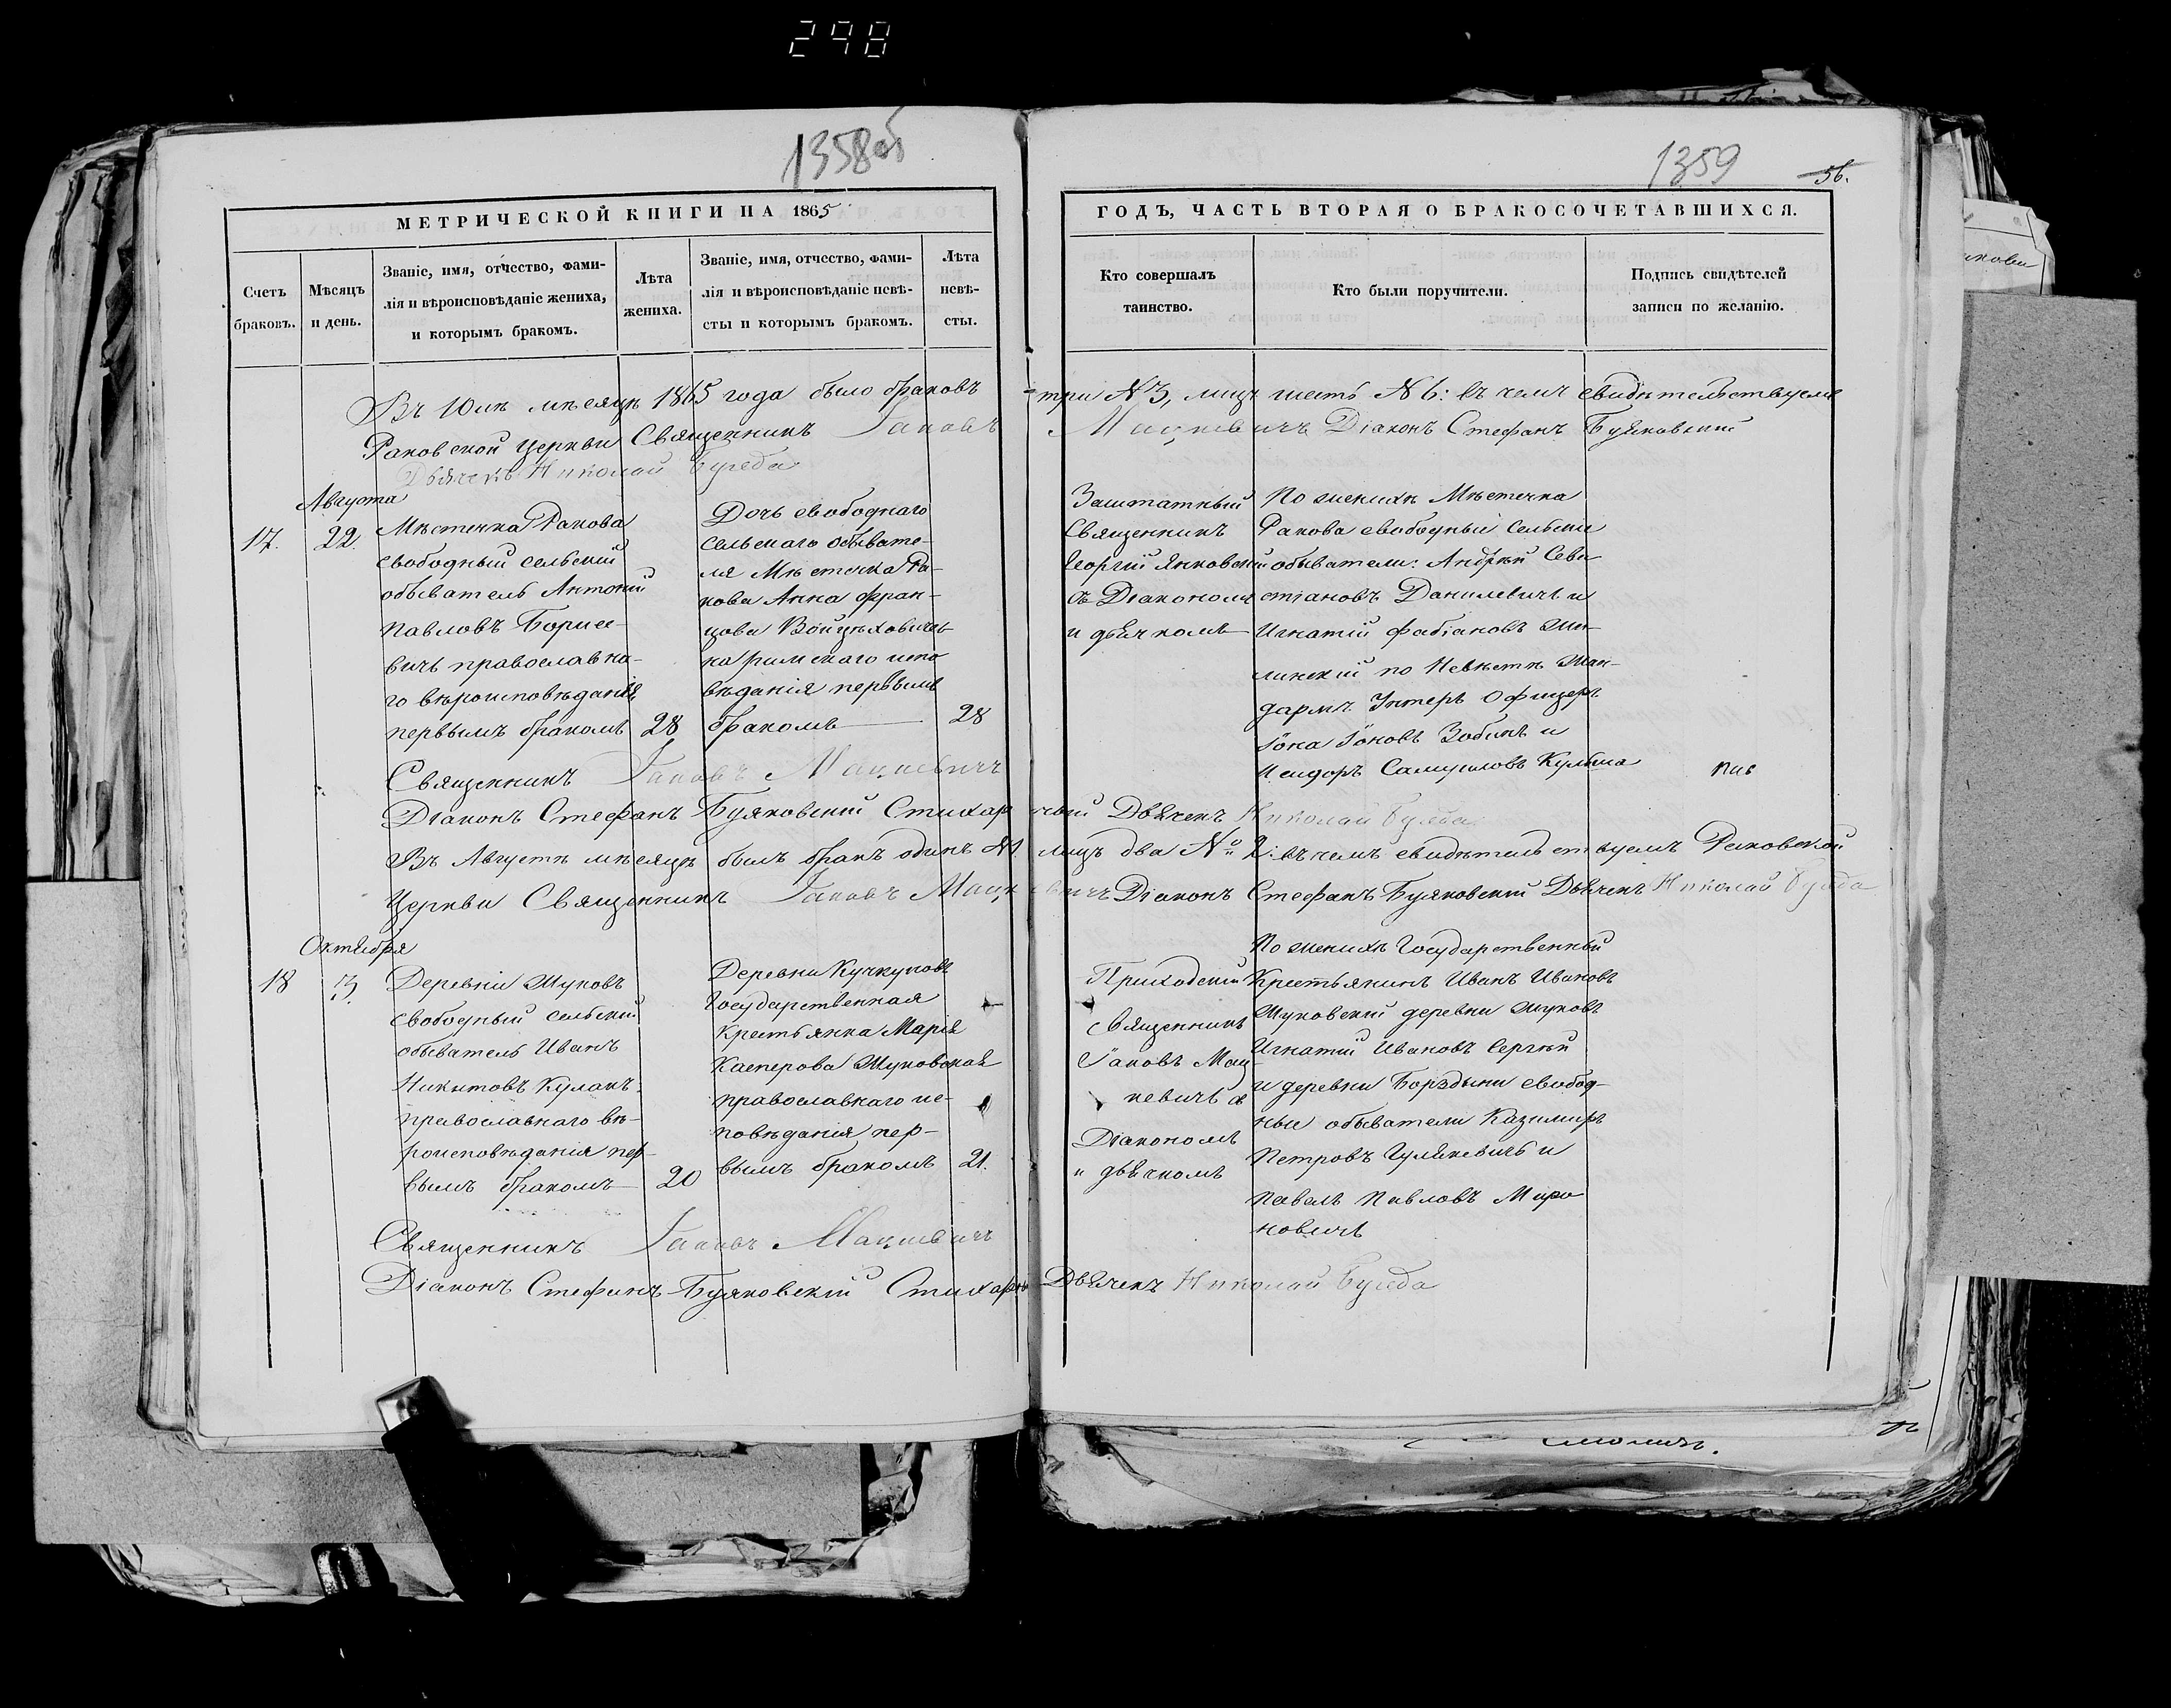 298
1358об
МЕТРИЧЕСКОЙ КНИГИ НА 1865
Счетъ браковъ.
Мѣсяцъ и день.
Званіе, имя, отчество, фами-
лія и вѣроисповѣданіе жениха,
и которымъ бракомъ.
Лѣта жениха.
Званіе, имя, отчество, фами-
лія и вѣроисповѣданіе невѣ-
сты и которымъ бракомъ.
Лѣта невѣ-
сты.
1359
56.
ГОДЪ, ЧАСТЬ ВТОРАЯ О БРАКОСОЧЕТАВШИХСЯ.
Кто совершалъ
таинство.
Кто были поручители.
Подпись свидѣтелей
записи по желанію.
Въ Юлѣ мѣсяцѣ 1865 года было браковъ три №3, лицъ шесть №6: въ чемъ свидѣтельствуемъ
Раковской Церкви Священникъ Іаковъ Мацкевичъ Діаконъ Стефанъ Буяковскій
Дьячекъ Николай
Августа
17.
22.
Мѣстечка Ракова
свободный сельскій
обыватель Антоній
Павловъ Борисе-
вичъ православна-
го вѣроисповѣданія
первымъ бракомъ
28
Дочь свободнаго
сельскаго обывате-
ля Мѣстечка Ра-
кова Анна Фран-
цова Войцѣховичев-
на римскаго испо
вѣданія первымъ
бракомъ
28
Заштатный
Священникъ
Георгій Янковскій
съ Діакономъ
и дьячкомъ
По женихѣ Мѣстечка
Ракова свободный сельски
обыватели: Андрѣй Севи
стіановъ Данилевичъ и
Игнатій Фабіановъ Жи-
линскій по Невѣстѣ Жан-
дармъ Унтеръ Офицеръ
Іона Іоновъ Зобинъ и
Исидоръ Самуиловъ Кульша
Священникъ Іаковъ Мацкевичъ
Діаконъ Стефанъ Буяковскій Стихарный Дьячекъ Николай
Въ Августѣ мѣсяцѣ былъ бракъ одинъ №1. лицъ два № 2: въ чемъ свидѣтельствуемъ Раковской
Церкви Священникъ Іаковъ Мацкевичъ Діаконъ Стефанъ Буяковскій Дьячекъ Николай
Октября
18
3.
Деревни Жуковъ
свободный сельскій
обыватель Иванъ
Никитовъ Кулакъ
православнаго вѣ-
роисповѣданія пер-
вымъ бракомъ
20
Деревни Кучкуновъ
Государственная
крестьянка Марія
Касперова Жуковская
православнаго ис-
повѣданія пер-
вымъ бракомъ
21.
Приходскій
священникъ
Іаковъ Мац-
кевичъ съ
Діакономъ
и дьячкомъ
По женихѣ Государственный
Крестьянинъ Иванъ Ивановъ
Жуковскій деревни Жуковъ
Игнатій Ивановъ Сергѣй
и деревни Борздыни свобод-
ные обыватели Казимиръ
Петровъ Гулякевичъ и
Павелъ Павловъ Миро
новичъ
Священникъ Іаковъ Мацкевичъ
Діаконъ Стефанъ Буяковскій Стихарн Дьячекъ Николай